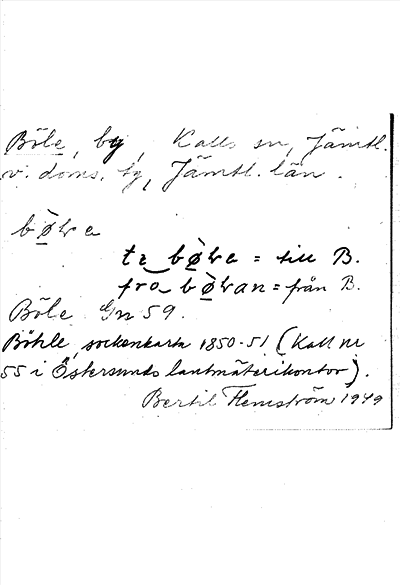 Böle, by, Kalls sn, Jämtl.
v. doms. tg, Jämtl. län.
bø̀ɽɐ
tɐ bø̀ɽɐ = till B.
fro bø̀ɽan = från B.
Böle Gn 59.
Böhle, sockenkarta 1850-51 (Kall nr
55 i Östersunds lantmäterikontor).
Bertil Flemström 1949